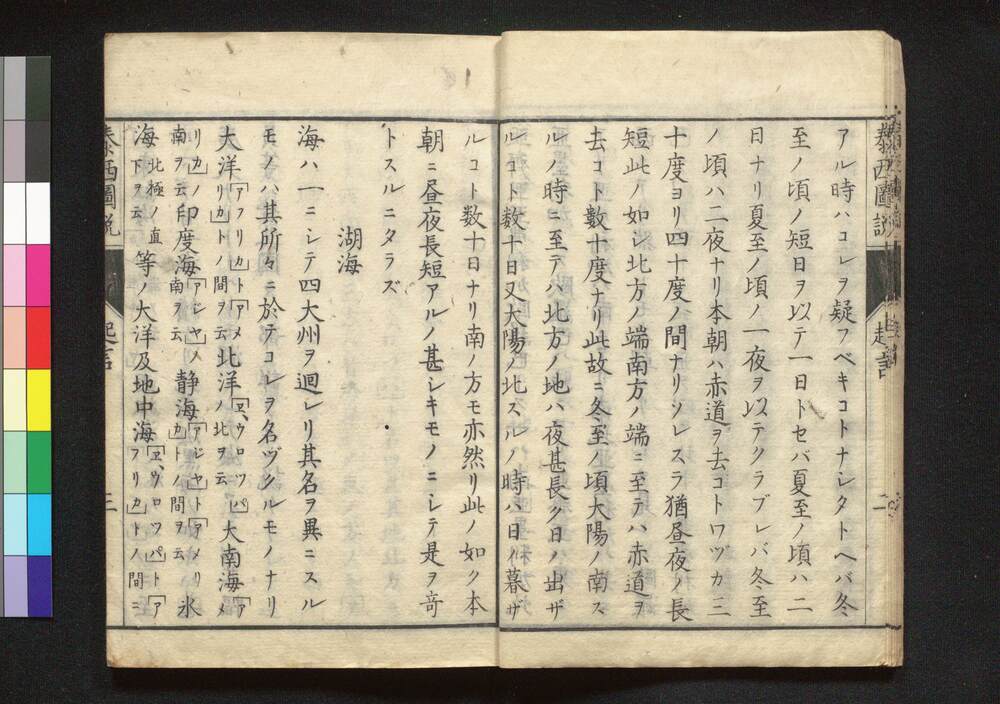 アル時ハコレヲ疑フベキコトナシタトヘバ冬
至ノ頃ノ短日ヲ以テ一日トセバ夏至ノ頃ハ二
日ナリ夏至ノ頃ノ一夜ヲ以テクラブレバ冬至
ノ頃ハ二夜ナリ本朝ハ赤道ヲ去コトワツカ三
十度ヨリ四十度ノ間ナリソレスラ猶昼夜ノ長
短此ノ如シ北方ノ端南方ノ端ニ至テハ赤道ヲ
去コト数十度ナリ此故ニ冬至ノ頃大陽ノ南ス
ルノ時ニ至テハ北方ノ地ハ夜甚長ク日ノ出ザ
ルコト数十日又大陽ノ北スルノ時ハ日ノ暮ザ
ルコト数十日ナリ南ノ方モ亦然リ此ノ如ク本
朝ニ昼夜長短アルノ甚シキモノニシテ是ヲ奇
トスルニタラズ
湖海
海ハ一ニシテ四大州ヲ迴レリ其名ヲ異ニスル
モノハ其所々ニ於テコレヲ名ヅクルモノナリ
大洋「アフリカ」ト「アメリカ」トノ間ヲ云北洋「ヱウロツパ」ノ北ヲ云大南海「アメ
リカ」ノ南ヲ云印度海「アジヤ」ノ南ヲ云静海「アジヤ」ト「アメリカ」トノ間ヲ云氷
海北極ノ直下ヲ云等ノ大洋及地中海「ヱウロツパ」ト「アフリカ」トノ間ニ
泰西圖説
起言
二
泰西圖説
起言
三